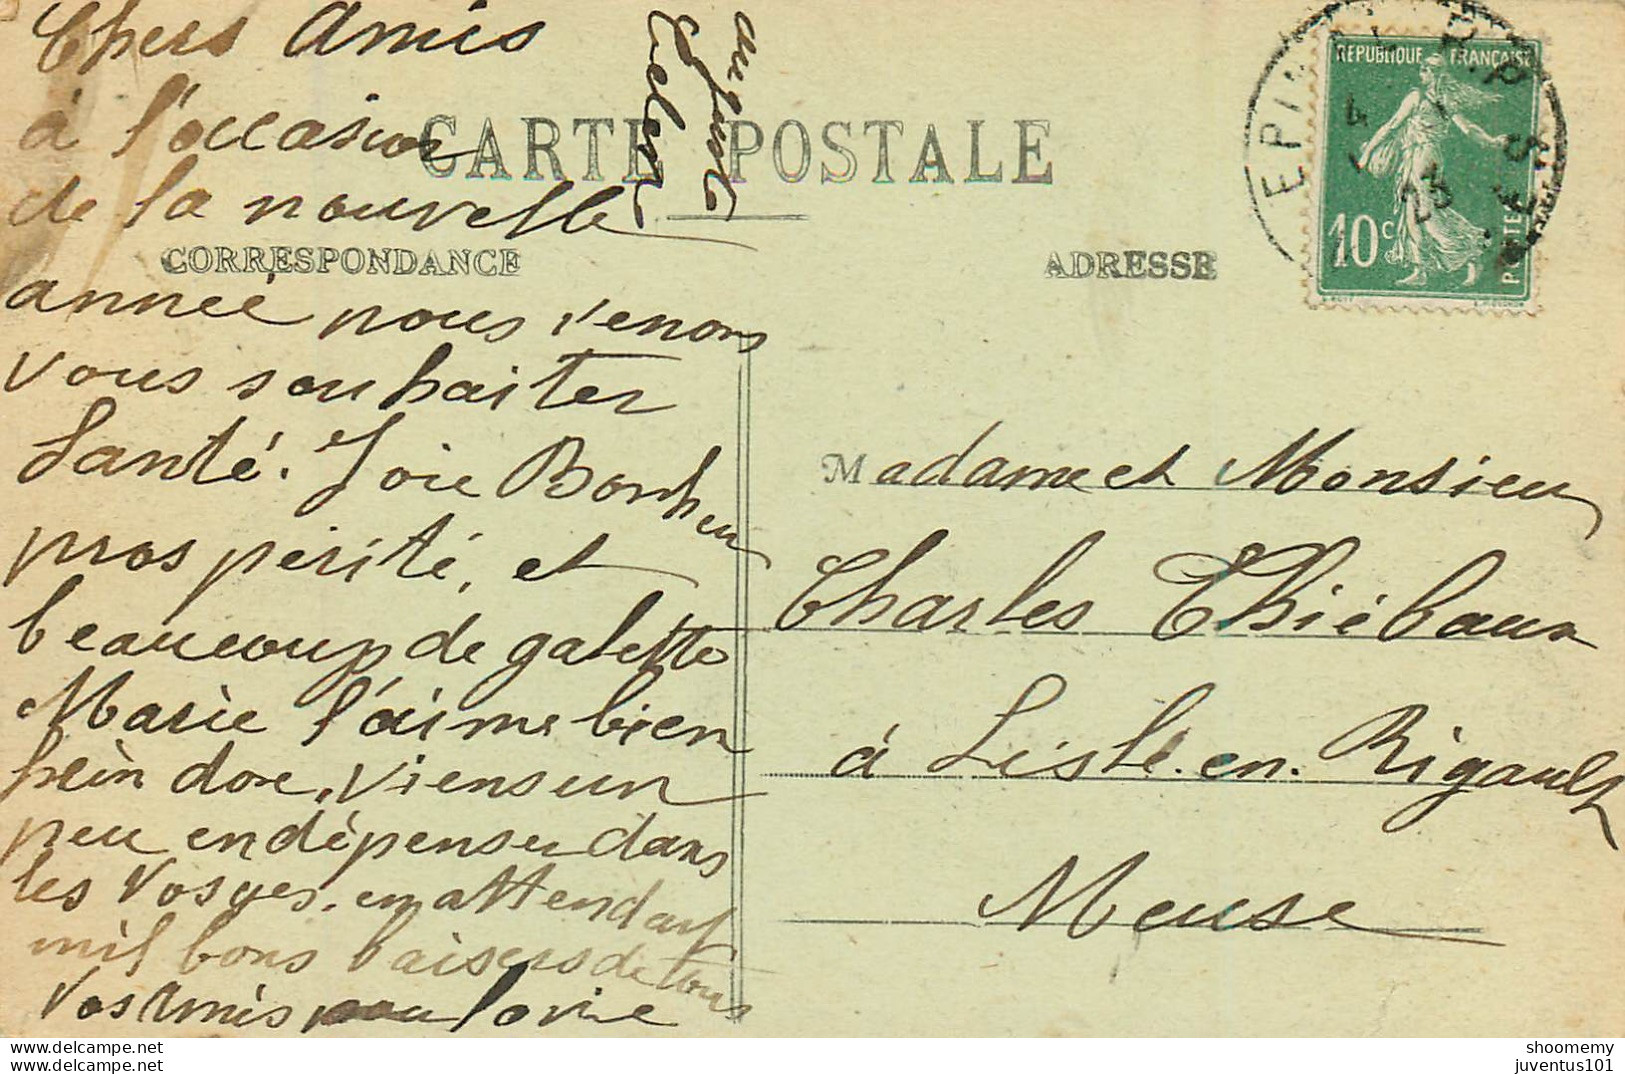 Chers Amis
à l'occasion
CARTE POSTALE
de la nouvelle
CORRESPONDANCE
année nous venons
vous souhaiter
Santé. Joie Bonheur
prospérité, et
beaucoup de galette
Marie l'aime bien
plein dore, viens un
peu en dépenser dans
les Vosges. en attendant
mil bons baisers de tous
Vos Amis pour la vie
ADRESSE
Madame et Monsieur
Charles Thiébaux
à Lisle. en. Rigault
Meuse
REPUBLIQUE FRANÇAISE
10c
POSTES
EPIN
23
www.delcampe.net
shoomemy
juventus101